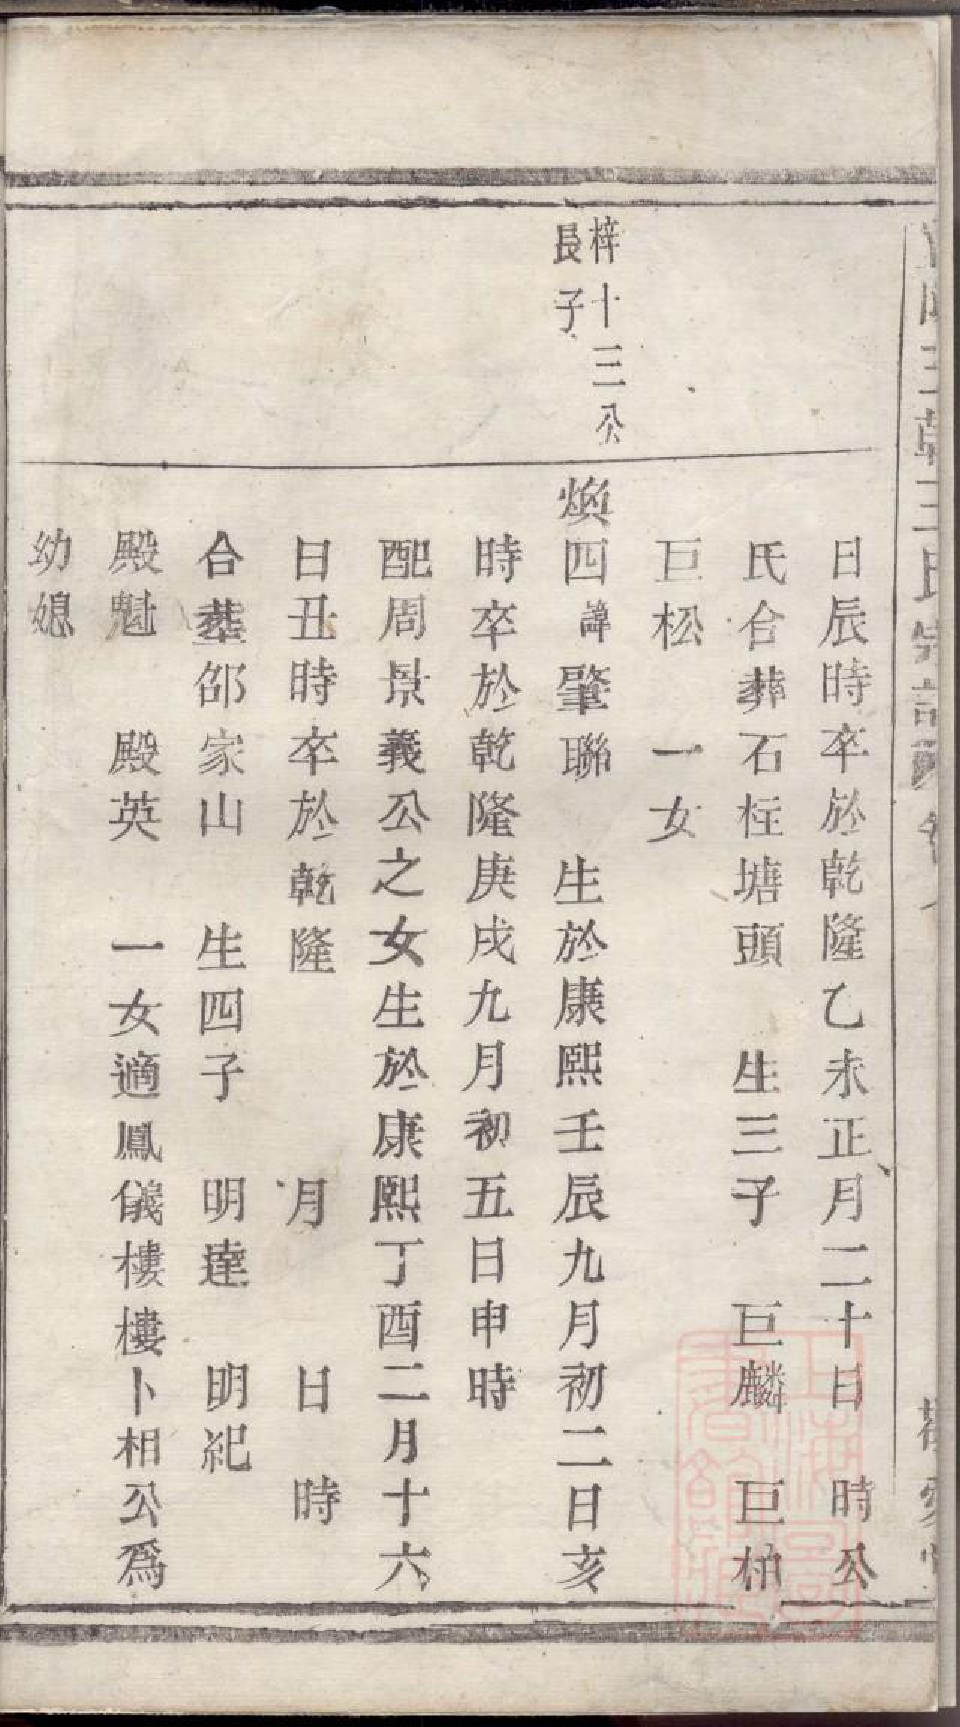 日辰時卒於乾隆乙未正月二十日 時公
氏合葬石柱塘頭 生三子 巨麟 巨柏
巨松 一女
梓十三公
長子
煥四諱肇聯 生於康熙壬辰九月初二日亥
時卒於乾隆庚戌九月初五日申時
配周景義公之女生於康熙丁酉二月十六
日丑時卒於乾隆 月 日 時
合塟邵家山 生四子 明達 明紀
殿魁 殿英 一女適鳳儀樓樓卜相公爲
幼媳